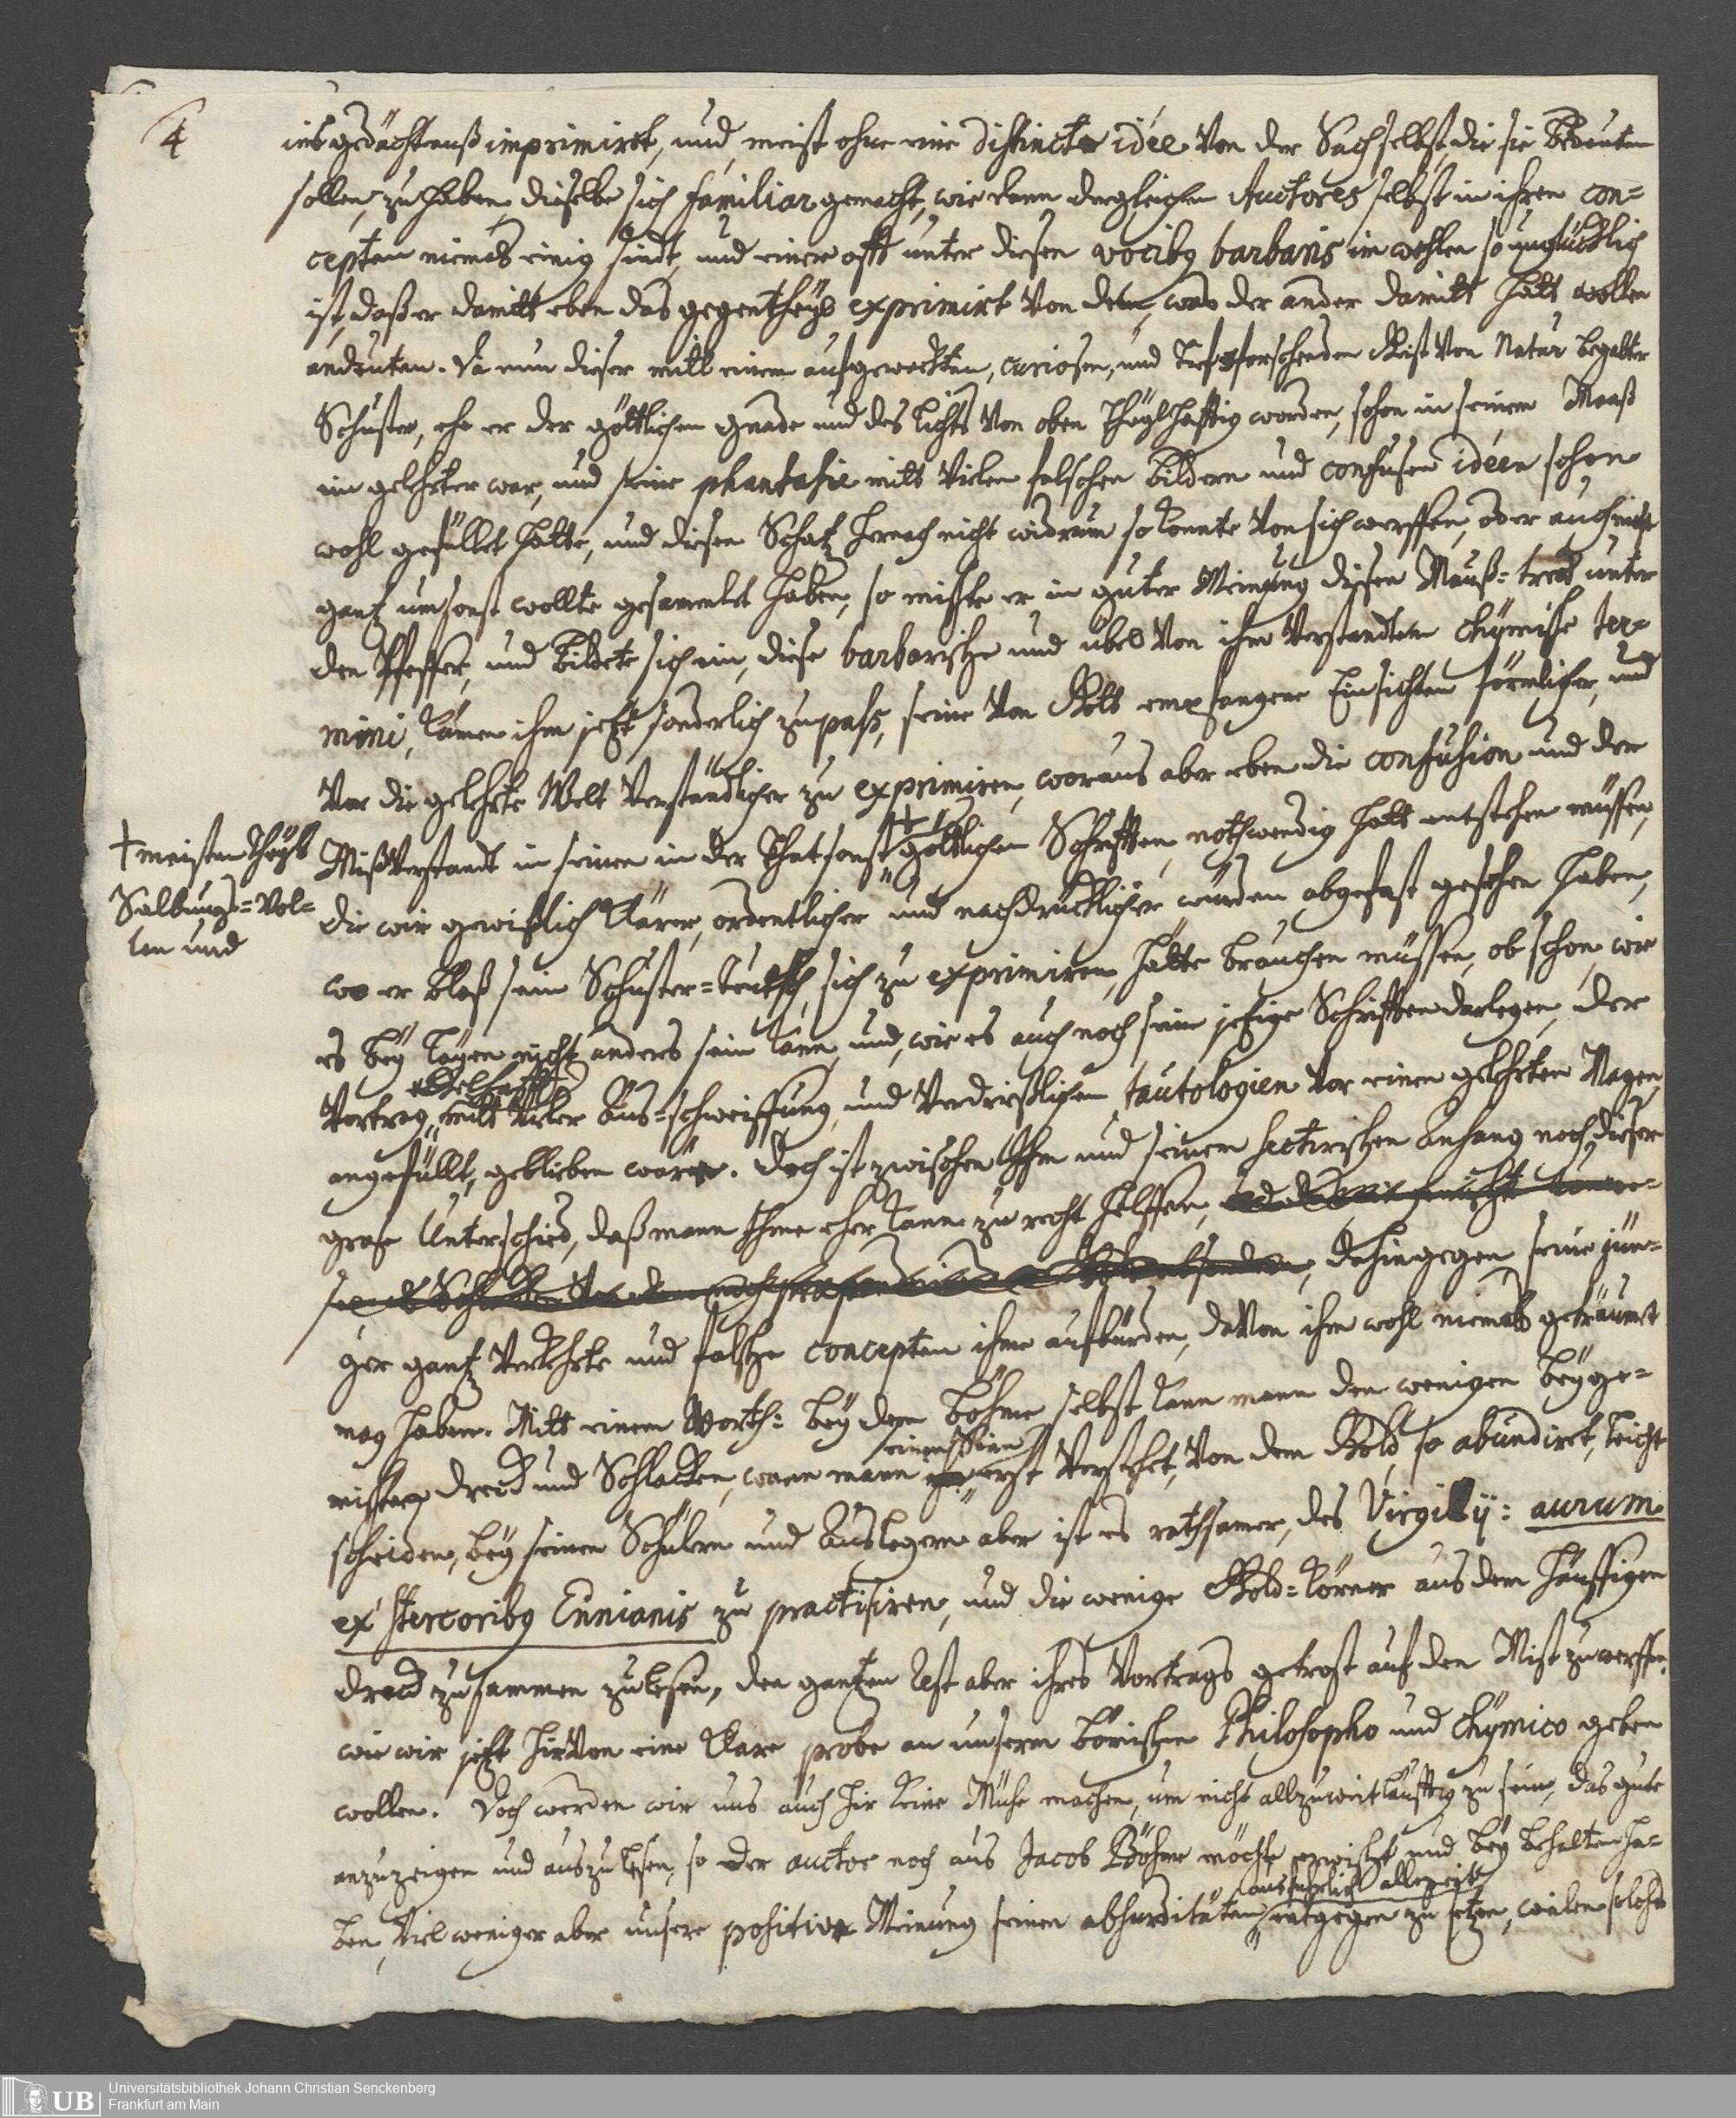 4
ins gedächtnuß imprimirt, und, meist ohne eine distincte idée von der Sach selbst, die sie bedeuten
sollen, zu haben, dieselbe sich familiar gemacht, wie dann dergleichen Auctores selbst in ihren con=
cepten niemals einig sindt, und einer offt unter diesen vocibg barbaris im wehlen so unglücklich
ist, daß er damitt eben das gegentheyl exprimirt von dem, was der ander damitt hatt wollen
andeuten. Da nun dieser mitt einem aufgeweckten, curiosen, und tiefforschenden Geist von Natur begabter
Schuster, ehe er der göttlichen gnade und des lichts von oben theylhafftig worden, schon in seinem Maaß
ein gelehrter war, und seine phantasie mitt vielen falschen bildern und confusen idéen schon
wohl gefüllet hatte, und diesen Schatz hernach nicht widrum so konnte von sich werffen, oder auch nicht
gantz umsonst wollte gesammlet haben, so mischte er in guter Meinung diesen Mauß=treck unter
den Pfeffer, und bildete sich ein, diese barbarische und übel von ihm verstandtene chymische ter=
mini, kämen ihm jetzt sonderlich zu paß, seine von Gott empfangene Einsichten förmlicher, und
vor die gelehrte Welt verständlicher zu exprimiren, woraus aber eben die confusion und der
Mißverstandt in seinen in der That sonst göttlichen Schrifften, nothwendig hatt entstehen müssen,
† meisten theyls
Salbungs=vol=
len und
die wir gewißlich klärer, ordentlicher und nachdrücklicher würden abgefast gesehen haben,
wo er bloß sein Schuster=teutsch, sich zu exprimiren, hätte brauchen müssen, ob schon, wie
es bey layen nicht anders sein kann, und, wie es auch noch seine jetzige Schrifften darlegen, der
Vortrag, mitt vieler Aus=schweiffung, und verdrießlichen tautologien vor einen gelehrten Magen,
angefüllt, geblieben wäre. Doch ist zwischen Ihm und seinem sectirischen Anhang noch dieser
große Unterschied, daß mann Ihme eher kann zu recht helffen,
dahingegen seine jün=
ger gantz verkehrte und falsche concepten ihme aufbürden, davon ihm wohl niemals geträumt
mag haben. Mitt einem Worth: bey dem Böhme selbst kann mann den wenigen beyge=
mischten dreck und Schlacken, wann mann
einen Sinn
erst verstehet, von dem Gold, so abundirt, leicht
scheiden, bey seinen Schülern und Auslegern aber ist es rathsamer, des Virgilij: aurum
ex stercoribg Ennianis zu practisiren, und die wenige Gold=körner aus dem häuffigen
dreck zusammen zu lesen, den gantzen Rest aber ihres Vortrags getrost auf den Mist zu werffen,
wie wir jetzt hirvon eine klare probe an unserm Philosopho und Chymico geben
wollen. Doch werden wir uns auch hir keine Mühe machen, um nicht allzuweitläufftig zu sein, das gute
anzuzeigen und auszulesen, so der auctor noch aus Jacob Böhme möchte erwischt und bey behalten ha=
ausführlich allezeit
ben, viel weniger aber unsere positive Meinung seinen absurditäten entgegen zu setzen, weilen solches
Universitätsbibliothek Johann Christian Senckenberg
Frankfurt am Main
UB